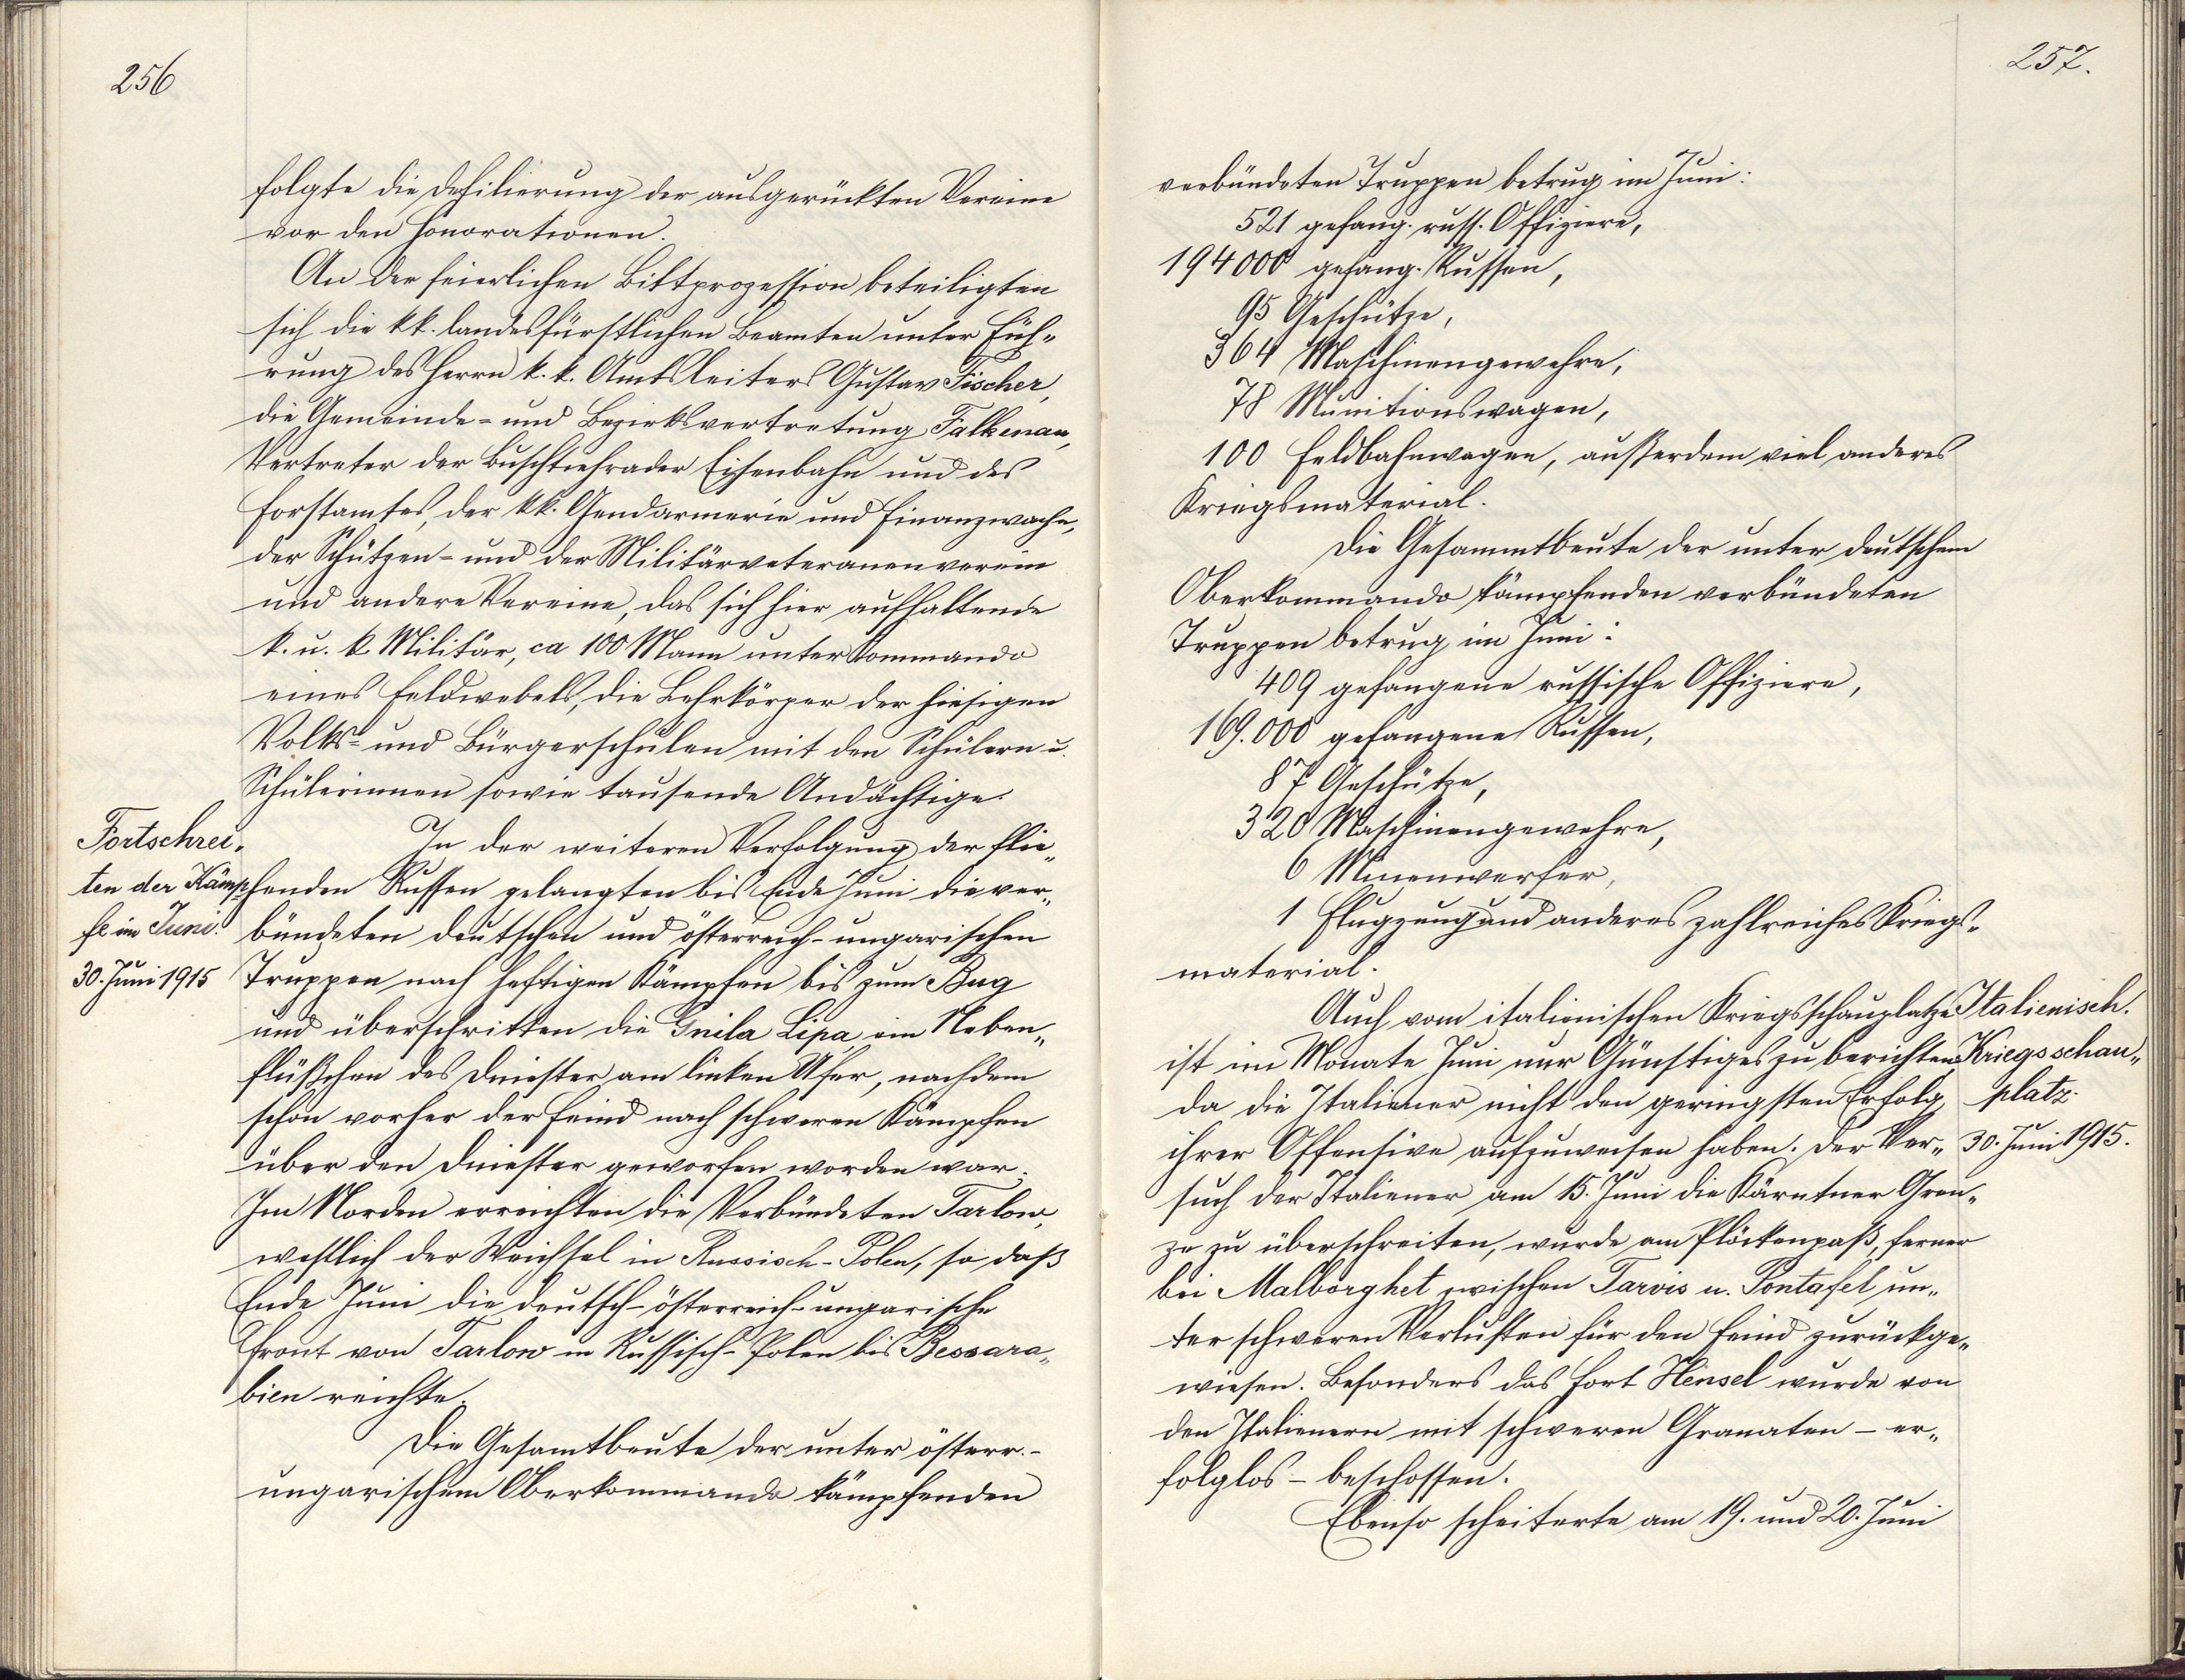 256
folgte die Defilierung der ausgerückten Vereine
vor den Honorationen.
An der feierlichen Bittprozession beteiligten
sich die kk. landesfürstlichen Beamten unter Füh„
rung des Herrn k. k. Amtsleiters Gustav Fischer,
die Gemeinde- und Bezirksvertretung Falkenau,
Vertreter der Buschtiehrader Eisenbahn und des
Forstamtes, der kk. Gendarmerie und Finanzwache,
der Schützen- und der Militärveteranenverein
und andere Vereine, das sich hier aufhaltende
k. u. k. Militär, ca 100 Mann unter Kommando
eines Feldwebels, die Lehrkörper der hiesigen
Volks- und Bürgerschulen mit den Schülern u.
Schülerinnen sowie tausende Andächtige.
Fortschrei„
ten der Kämp„
fe im Juni.
30. Juni 1915
In der weiteren Verfolgung der flie„
henden Russen gelangten bis Ende Juni die ver„
bündeten deutschen und österreich-ungarischen
Truppen nach heftigen Kämpfen bis zum Bug
und überschritten die Gnila Lipa, ein Neben„
flüßchen des Dniester am linken Ufer, nachdem
schon vorher der Feind nach schweren Kämpfen
über den Dniester geworfen worden war.
Im Norden erreichten die Verbündeten Tarlow,
westlich der Weichsel in Russisch-Polen, so daß
Ende Juni die deutsch-österreich-ungarische
Front von Tarlow in Russisch-Polen bis Bessara„
bien reichte.
Die Gesamtbeute der unter österr.-
ungarischem Oberkommando kämpfenden
257.
verbündeten Truppen betrug im Juni:
521 gefang. russ. Offiziere,
194000 gefang. Russen,
95 Geschütze,
364 Maschinengewehre,
78 Munitionswagen,
100 Feldbahnwagen, außerdem viel anderes
Kriegsmaterial.
Die Gesammtbeute der unter deutschem
Oberkommando kämpfenden verbündeten
Truppen betrug im Juni:
409 gefangene russische Offiziere,
169.000 gefangene Russen,
87 Geschütze,
320 Maschinengewehre,
6 Minenwerfer,
1 Flugzeug und anderes zahlreiches Kriegs„
material.
Auch vom italienischen Kriegsschauplatze
ist im Monate Juni nur Günstiges zu berichten,
da die Italiener nicht den geringsten Erfolg
ihrer Offensive aufzuweisen haben. Der Ver„
such der Italiener am 15. Juni die Kärntner Gren„
ze zu überschreiten, wurde am Plöckenpaß, ferner
bei Malborghet zwischen Tarvis u. Pontafel un„
ter schweren Verlusten für den Feind zurückge„
wiesen. Besonders das Fort Hensel wurde von
den Italienern mit schweren Granaten – er„
folglos – beschossen.
Ebenso scheiterte am 19. und 20. Juni
Italienisch.
Kriegsschau„
platz.
30. Juni 1915.